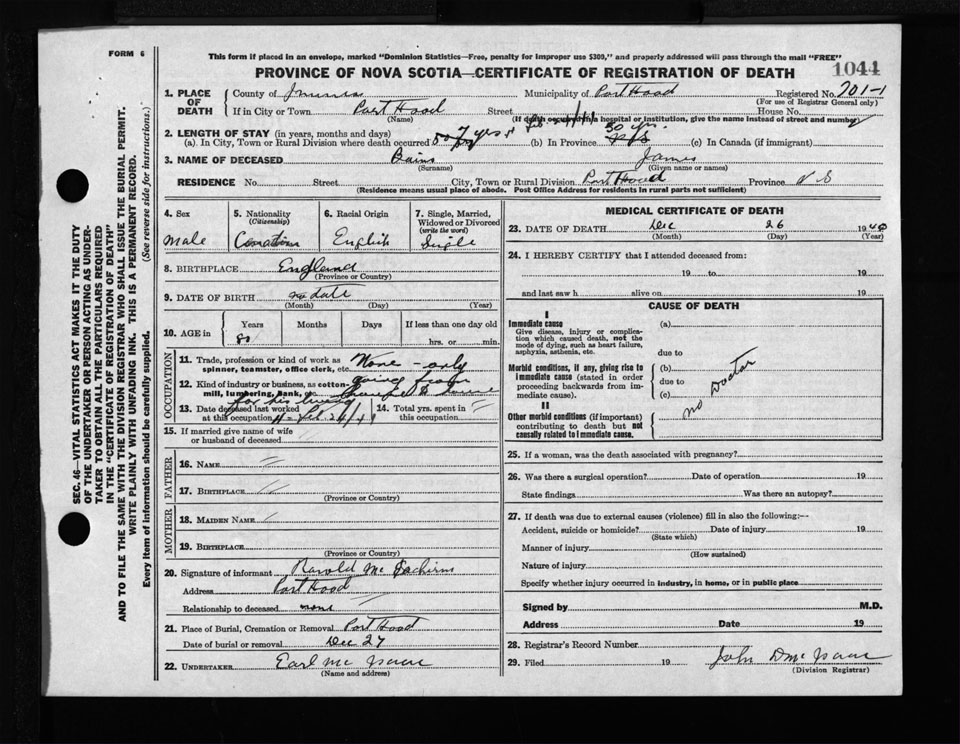 FORM 6
This form if placed in an envelope, marked "Dominion Statistics—Free, penalty for improper use $300," and properly addressed will pass through the mail "FREE"
1044
PROVINCE OF NOVA SCOTIA—CERTIFICATE OF REGISTRATION OF DEATH
1. PLACE OF DEATH County of Municipality of Port Hood Registered No. 201-1
(For use of Registrar General only)
If in City or Town Port Hood Street House No.
(Name) (If death occurred in a hospital or institution, give the name instead of street and number)
2. LENGTH OF STAY (in years, months and days)
(a). In City, Town or Rural Division where death occurred 7 yrs (b) In Province 50 yrs. (c) In Canada (if immigrant)
3. NAME OF DECEASED Bains James
(Surname) (Given name or names)
RESIDENCE No. Street City, Town or Rural Division Port Hood Province N S
(Residence means usual place of abode. Post Office Address for residents in rural parts not sufficient)
4. Sex
male
5. Nationality (Citizenship)
Canadian
6. Racial Origin
English
7. Single, Married, Widowed or Divorced (write the word)
Single
8. BIRTHPLACE England
(Province or Country)
9. DATE OF BIRTH no date
(Month) (Day) (Year)
10. AGE in Years Months Days If less than one day old
80 hrs. or min.
OCCUPATION
11. Trade, profession or kind of work as spinner, teamster, office clerk, etc. None - only
12. Kind of industry or business, as cotton-mill, lumbering, bank, etc. going from
for his living
13. Date deceased last worked at this occupation
14. Total yrs. spent in this occupation
15. If married give name of wife or husband of deceased
FATHER
16. NAME
17. BIRTHPLACE
(Province or Country)
MOTHER
18. MAIDEN NAME
19. BIRTHPLACE
(Province or Country)
20. Signature of informant Harold Mc Eachern
Address Port Hood
Relationship to deceased none
21. Place of Burial, Cremation or Removal Port Hood
Date of burial or removal Dec 27
22. UNDERTAKER Earl Mc Isaac
(Name and address)
MEDICAL CERTIFICATE OF DEATH
23. DATE OF DEATH Dec 26 19
(Month) (Day) (Year)
24. I HEREBY CERTIFY that I attended deceased from:
19 to 19
and last saw h alive on 19
CAUSE OF DEATH
I
Immediate cause
Give disease, injury or complication which caused death, not the mode of dying, such as heart failure, asphyxia, asthenia, etc.
(a)
due to
Morbid conditions, if any, giving rise to immediate cause (stated in order proceeding backwards from immediate cause).
(b)
due to
(c)
no Doctor
II
Other morbid conditions (if important) contributing to death but not causally related to immediate cause.
25. If a woman, was the death associated with pregnancy?
26. Was there a surgical operation? Date of operation 19
State findings Was there an autopsy?
27. If death was due to external causes (violence) fill in also the following:—
Accident, suicide or homicide? Date of injury 19
(State which)
Manner of injury
(How sustained)
Nature of injury
Specify whether injury occurred in industry, in home, or in public place
Signed by M.D.
Address Date 19
28. Registrar's Record Number
29. Filed 19 John D Mc Isaac
(Division Registrar)
SEC. 46—VITAL STATISTICS ACT MAKES IT THE DUTY
OF THE UNDERTAKER OR PERSON ACTING AS UNDER-
TAKER TO OBTAIN ALL THE PARTICULARS REQUIRED
IN THE "CERTIFICATE OF REGISTRATION OF DEATH"
AND TO FILE THE SAME WITH THE DIVISION REGISTRAR WHO SHALL ISSUE THE BURIAL PERMIT.
WRITE PLAINLY WITH UNFADING INK. THIS IS A PERMANENT RECORD.
Every item of information should be carefully supplied. (See reverse side for instructions.)